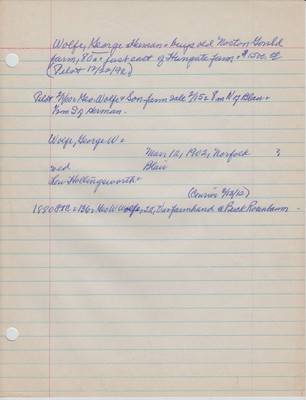 Wolfe, George - Herman - buys old Norton Gould
farm, 80a - just east of Hungate farm - $1500.00
(Pilot 12/22/98)
Pilot 2/60 - Geo. Wolfe & Son farm sale 2/15 - 8 m N of Blair -
1/2 m S of Herman.
Wolfe, George W -
Mar 12, 1902, Norfolk ?
wed Blair
Lou Hollingsworth -
(Census 3/13/12)
1880 - Geo W Wolfe, 22, Va - farmhand @ Buck Rosenbaum -